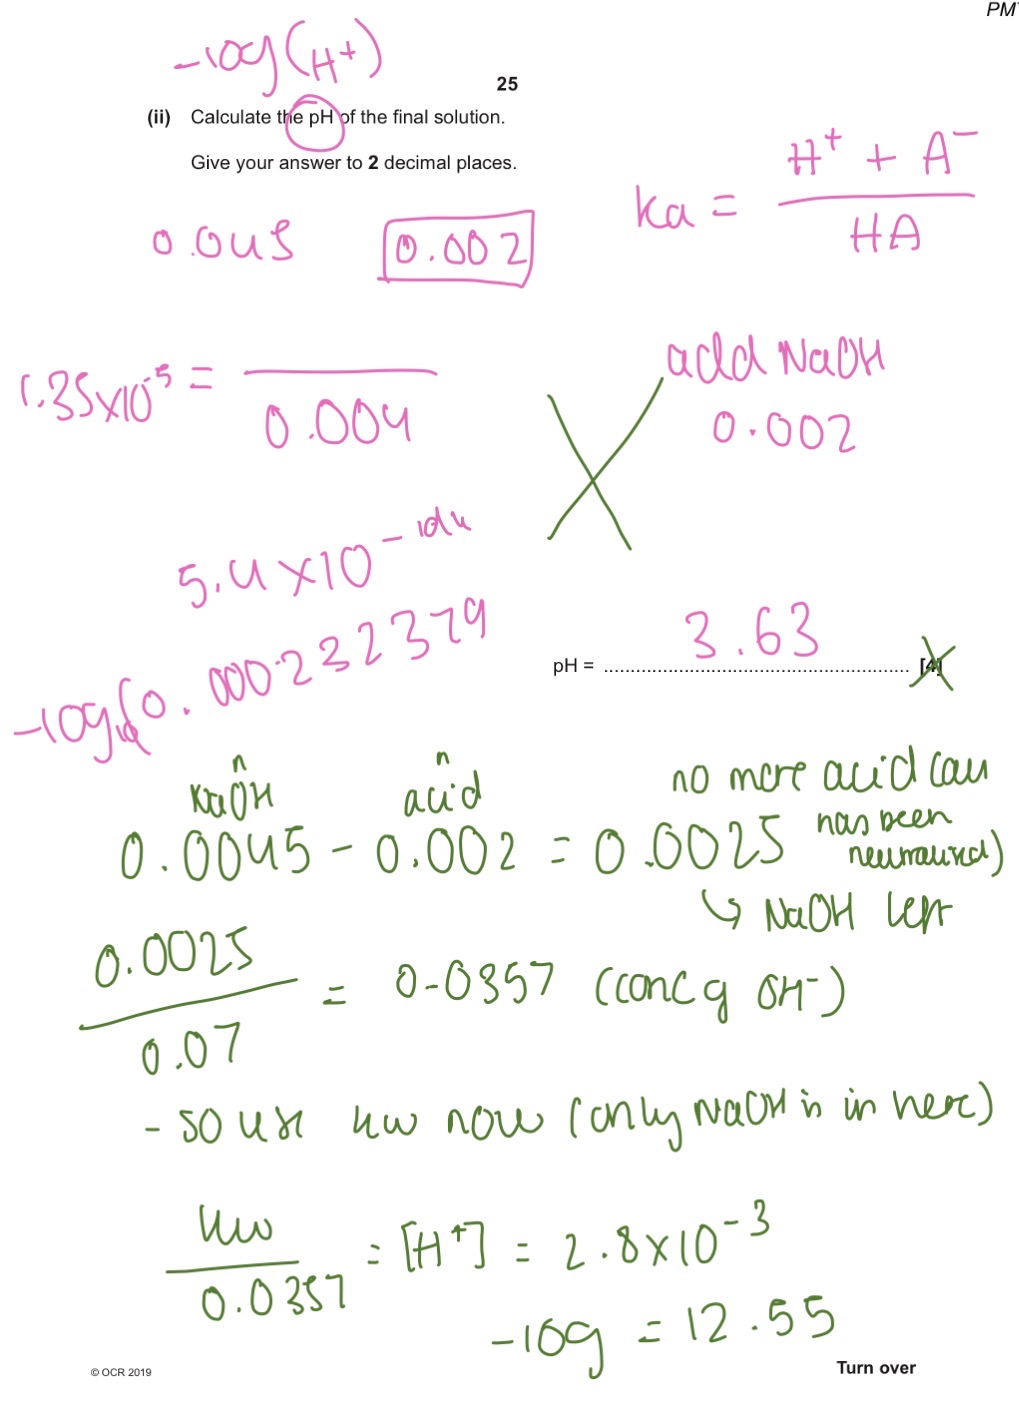 PM
-log(H+)
25
(ii) Calculate the pH of the final solution.
Give your answer to 2 decimal places.
H+ + A-
ka =
HA
0.045 0.002
add NaOH
0.002
1.35x10-5 =
0.004
5.4x10-
-log(0.000232379
3.63
pH = [4]
n n
NaOH acid
no more acid (all
has been
neutralised)
0.0045 - 0.002 = 0.0025
↳ NaOH left
0.0025
= 0.0357 (conc of OH-)
0.07
- so use kw now (only NaOH is in here)
kw
= [H+] = 2.8x10-3
0.0357
-log = 12.55
© OCR 2019
Turn over